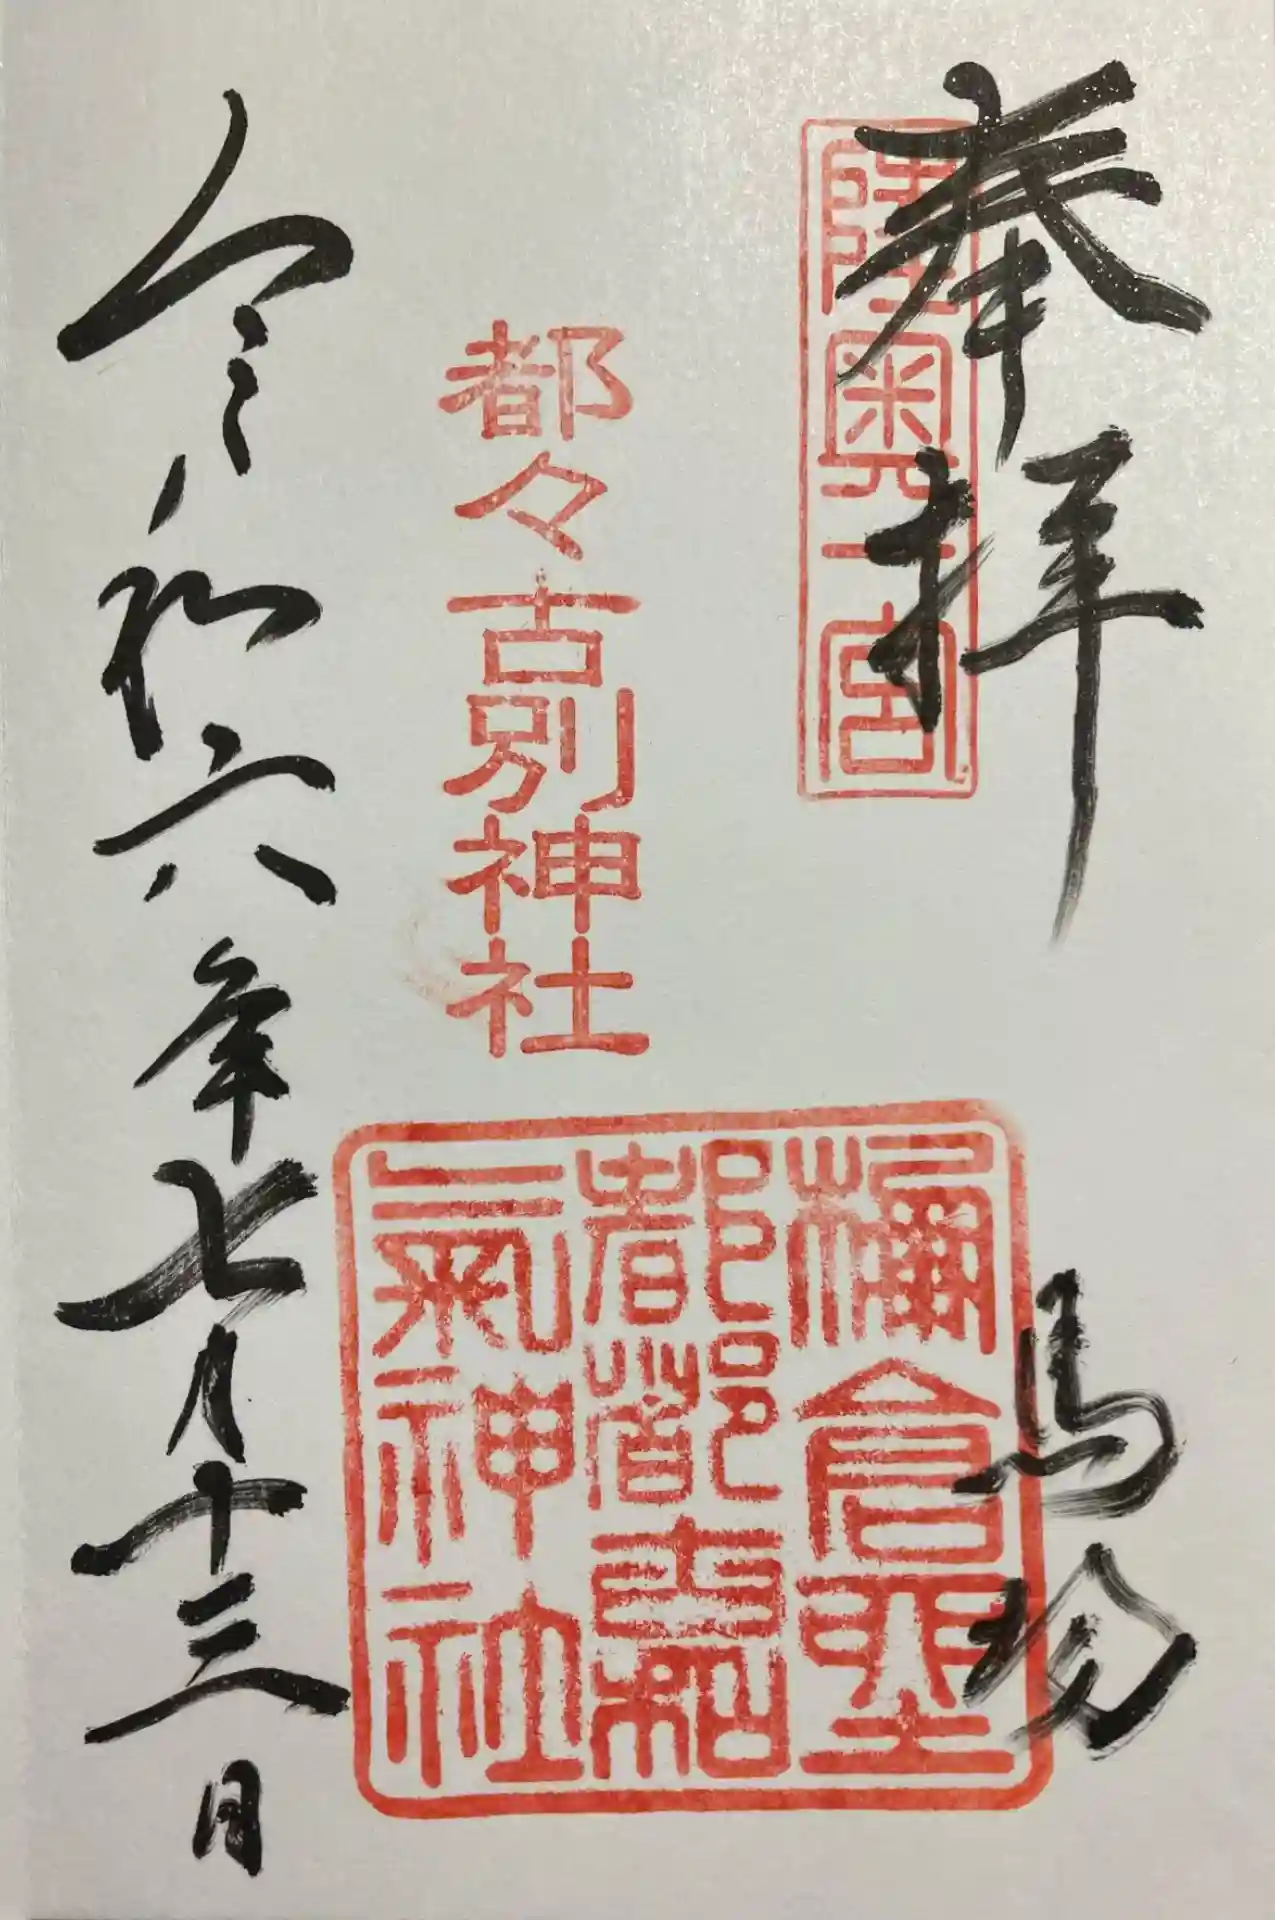 奉拝
陸奥一宮
馬場
都々古別神社
棚倉坐
都都古和
氣神社
令和六年七月十三日